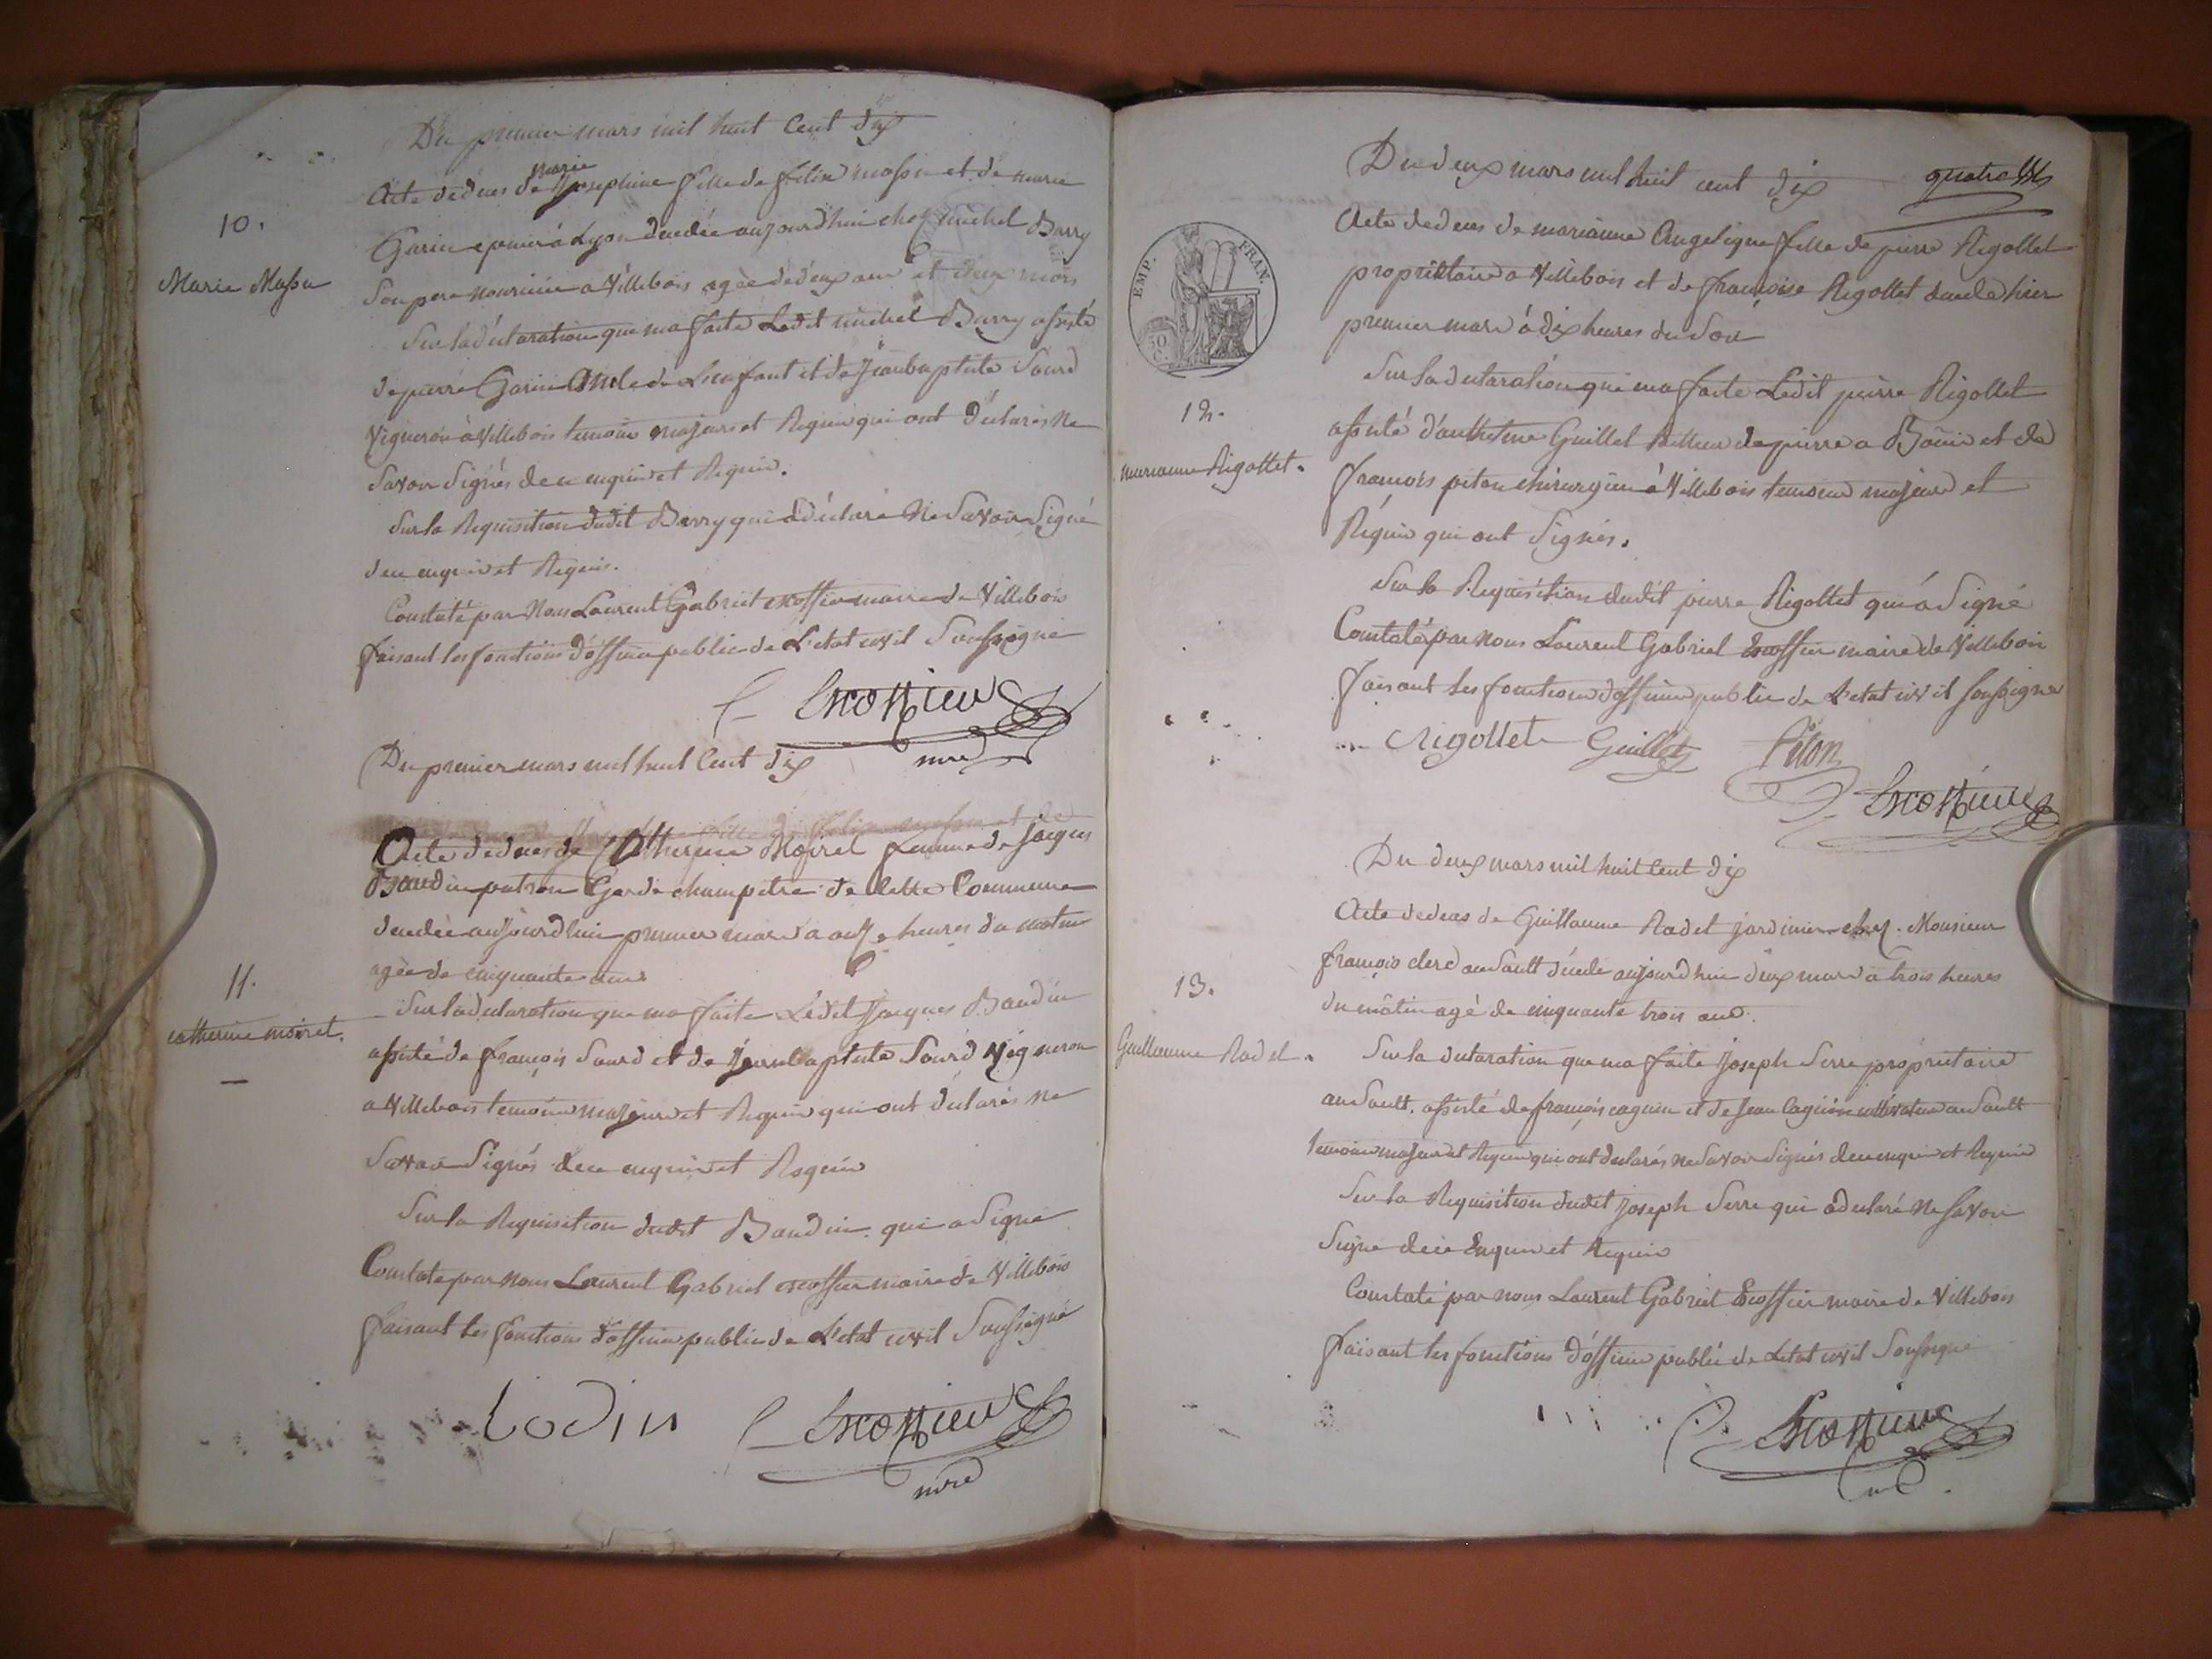 Du premier mars mil huit Cent dix
10.
Marie Massu
marie
Acte de déces de Josephine fille de felix massu et de marie
Garin epoux à Lyon décédée aujourd'hui chez michel Barry
Son pere nouricier a Villebois agée de deux ans et deux mois
Sur la déclaration que ma faite Ledit michel Barry assisté
de pierre Garin Oncle de L'enfant et de Jean baptiste Sourd
Vigneron à Villebois temoins majeurs et Requis qui ont déclarés Ne
Savoir Signés de ce enquis et Requis.
Sur la Requisition dudit Barry qui a déclaré Ne Savoir Signé
de ce enquis et Requis.
Constaté par Nous Laurent Gabriel escoffier maire de Villebois
faisant les fonctions d'officier public de L'etat civil Soussigné
Escoffier
mre
Du premier mars mil huit Cent dix
11.
catherine moiret.
Acte de déces de Catherine Moiret femme de Jacques
Baudin patron Garde champetre de Cette Commune
décédée aujourd'hui premier mars a onze heures du matin
agée de cinquante ans
Sur la déclaration que ma faite Ledit Jacques Baudin
assisté de françois Sourd et de Jean baptiste Sourd Vigneron
a Villebois temoins majeurs et Requis qui ont déclarés ne
Savoir Signés de ce enquis et Requis
Sur la Requisition dudit Baudin qui a Signé
Constaté par nous Laurent Gabriel escoffier maire de Villebois
faisant les fonctions d'officier public de L'etat civil Soussigné
bodin Escoffier
mre
Du deux mars mil huit cent dix
quatre
EMP. FRAN.
50
C.
12.
marianne Rigollet.
Acte de déces de marianne Angelique fille de pierre Rigollet
propriétaire a Villebois et de françoise Rigollet décédée hier
premier mars à dix heures du Soir
Sur la déclaration que ma faite Ledit pierre Rigollet
assisté d'anthelme Guillet tailleur de pierre a Bouis et de
françois piton chirurgien à Villebois temoins majeurs et
Réquis qui ont Signés.
Sur la Réquisition dudit pierre Rigollet qui à Signé
Constaté par nous Laurent Gabriel Escoffier maire de Villebois
faisant les fonctions d'officier public de L'etat civil soussigné
Rigollet Guillet Piton
Escoffier
Du deux mars mil huit Cent dix
13.
Guillaume Radel.
Acte de déces de Guillaume Radel jardinier chez Monsieur
françois clerc au Sault décédé aujourd'hui deux mars à trois heures
du mâtin agé de cinquante trois ans.
Sur la declaration que ma faite Joseph Serre propriétaire
au Sault. assisté de françois caquin et de Jean Caquin cultivateurs au Sault
temoins majeurs et Requis qui ont declarés ne Savoir Signés de ce enquis et Requis
Sur la Requisition dudit Joseph Serre qui a declaré Ne Savoir
Signe de ce Enquis et Requis
Constaté par nous Laurent Gabriel Escoffier maire de Villebois
faisant les fonctions d'officier public de Letat civil Soussigné
Escoffier